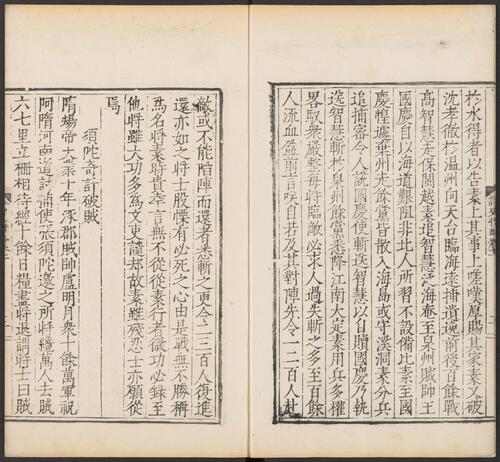 於水得者以告素上其事上嗟嘆厚賜其家素又破
沈孝徹於温州向天台臨海逐捕遺逸前後百餘戰
高智慧走保閩越素追智慧泛海奄至泉州賊帥王
國慶自以海道艱阻非北人所習不設備比素至國
慶惶遽棄州走餘黨皆散入海島或守溪洞素分兵
追捕密令人說國慶使斬送智慧以自贖國慶乃執
送智慧斬於泉州餘黨悉降江南大定素用兵多權
畧馭衆嚴整每將臨敵必求人過失斬之多至百餘
人流血盈前言咲自若及其對陣先令一二百人赴
敵或不能陷陣而還者悉斬之更令二三百人復進
還亦如之將士股慄有必死之心由是戰無不勝稱
為名將素時貴幸言無不從從素行者微功必録至
他將雖大功多為文吏譴却故素雖殘忍士亦願從
焉
須陀奇計破賊
隋煬帝大業十年涿郡賊帥盧明月衆十餘萬軍祝
阿隋河南道討捕使張須陀邀之所將纔萬人去賊
六七里立柵相待經十餘日糧盡將退謂將士曰賊